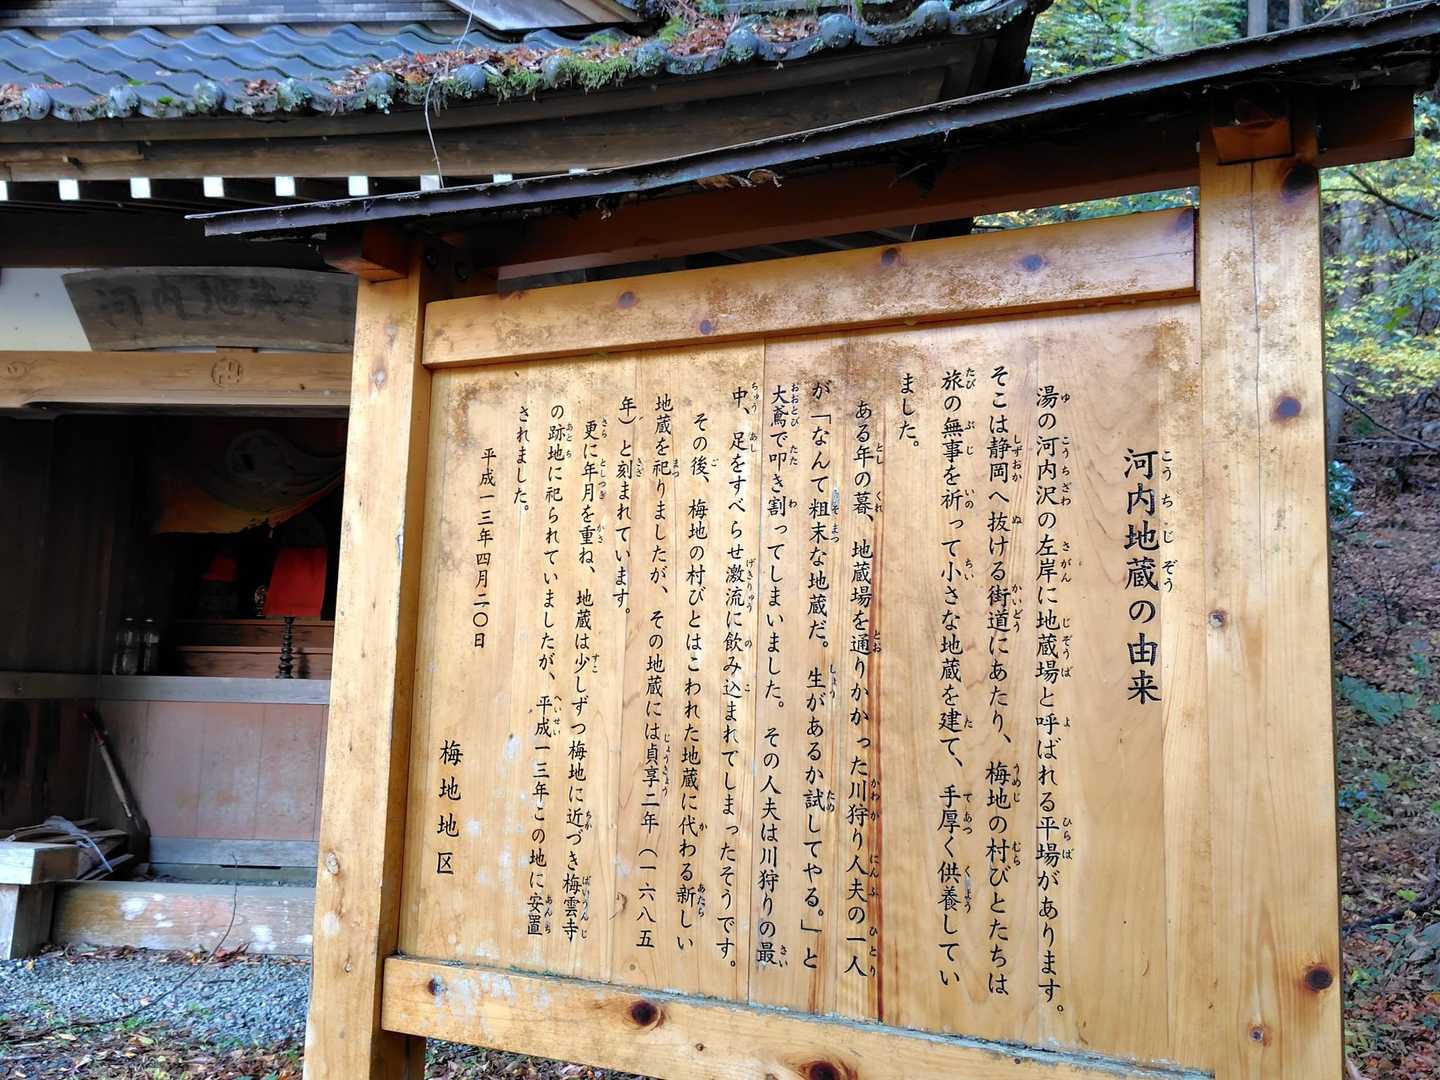 河内地蔵堂
河内地蔵の由来
湯の河内沢の左岸に地蔵場と呼ばれる平場があります。
そこは静岡へ抜ける街道にあたり、梅地の村びとたちは
旅の無事を祈って小さな地蔵を建て、手厚く供養してい
ました。
ある年の暮、地蔵場を通りかかった川狩り人夫の一人
が「なんて粗末な地蔵だ。生があるか試してやる。」と
大鳶で叩き割ってしまいました。その人夫は川狩りの最
中、足をすべらせ激流に飲み込まれてしまったそうです。
その後、梅地の村びとはこわれた地蔵に代わる新しい
地蔵を祀りましたが、その地蔵には貞享二年（一六八五
年）と刻まれています。
更に年月を重ね、地蔵は少しずつ梅地に近づき梅雲寺
の跡地に祀られていましたが、平成一三年この地に安置
されました。
平成一三年四月二〇日
梅地地区